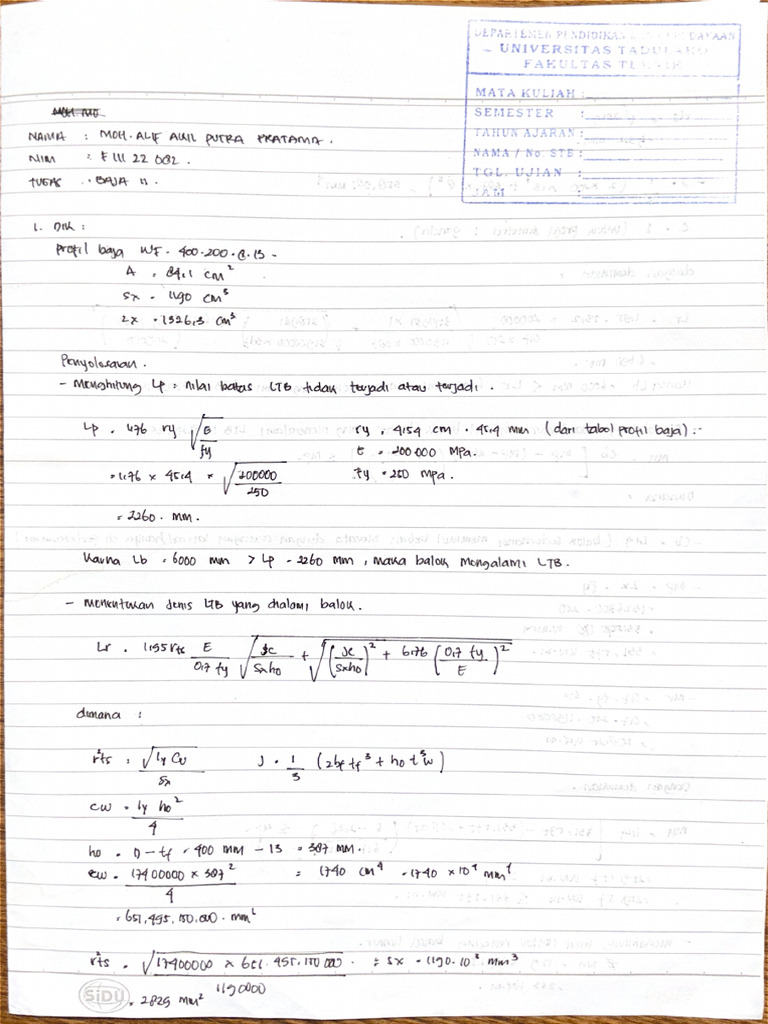 DEPARTEMEN PENDIDIKAN DAYAAN
UNIVERSITAS TADULAKO
FAKULTAS TEKNIK
MATA KULIAH :
SEMESTER :
TAHUN AJARAN :
NAMA / No. STB :
TGL. UJIAN :
JAM :
NAMA : MOH. ALIF AKIL PUTRA PRATAMA.
NIM : F 111 22 082.
TUGAS : BAJA II.
1. Dik :
Profil baja WF . 400.200.8.13 -
A = 84,1 cm²
Sx = 1190 cm³
Zx = 1326,3 cm³
Penyelesaian.
- Menghitung Lp = nilai batas LTB tidak terjadi atau terjadi.
Lp = 1,76 ry √(E/fy) ry = 4,54 cm = 45,4 mm (dari tabel profil baja) :-
E = 200.000 MPa.
= 1,76 × 45,4 × √(200000/250) Fy = 250 MPa.
= 2260 . mm.
Karna Lb = 6000 mm > Lp = 2260 mm, maka balok mengalami LTB.
- Menentukan Jenis LTB yang dialami balok.
Lr = 1,95 rts E/(0,7 fy) √(Jc/(Sx ho) + √((Jc/(Sx ho))² + 6,76 (0,7 fy/E)²))
dimana :
r²ts = √(Iy Cw)/Sx J = 1/3 (2bf tf³ + ho t³w)
Cw = Iy ho²/4
ho = D - tf = 400 mm - 13 = 387 mm.
Cw = 17400000 × 387²/4 = 1740 cm⁴ = 1740 × 10⁴ mm⁴
= 651,495,150,000 . mm⁶
r²ts = √(17400000 × 651.495.150.000)/1190000 = Sx = 1190.10³ mm³
= 2829 mm²
SiDU